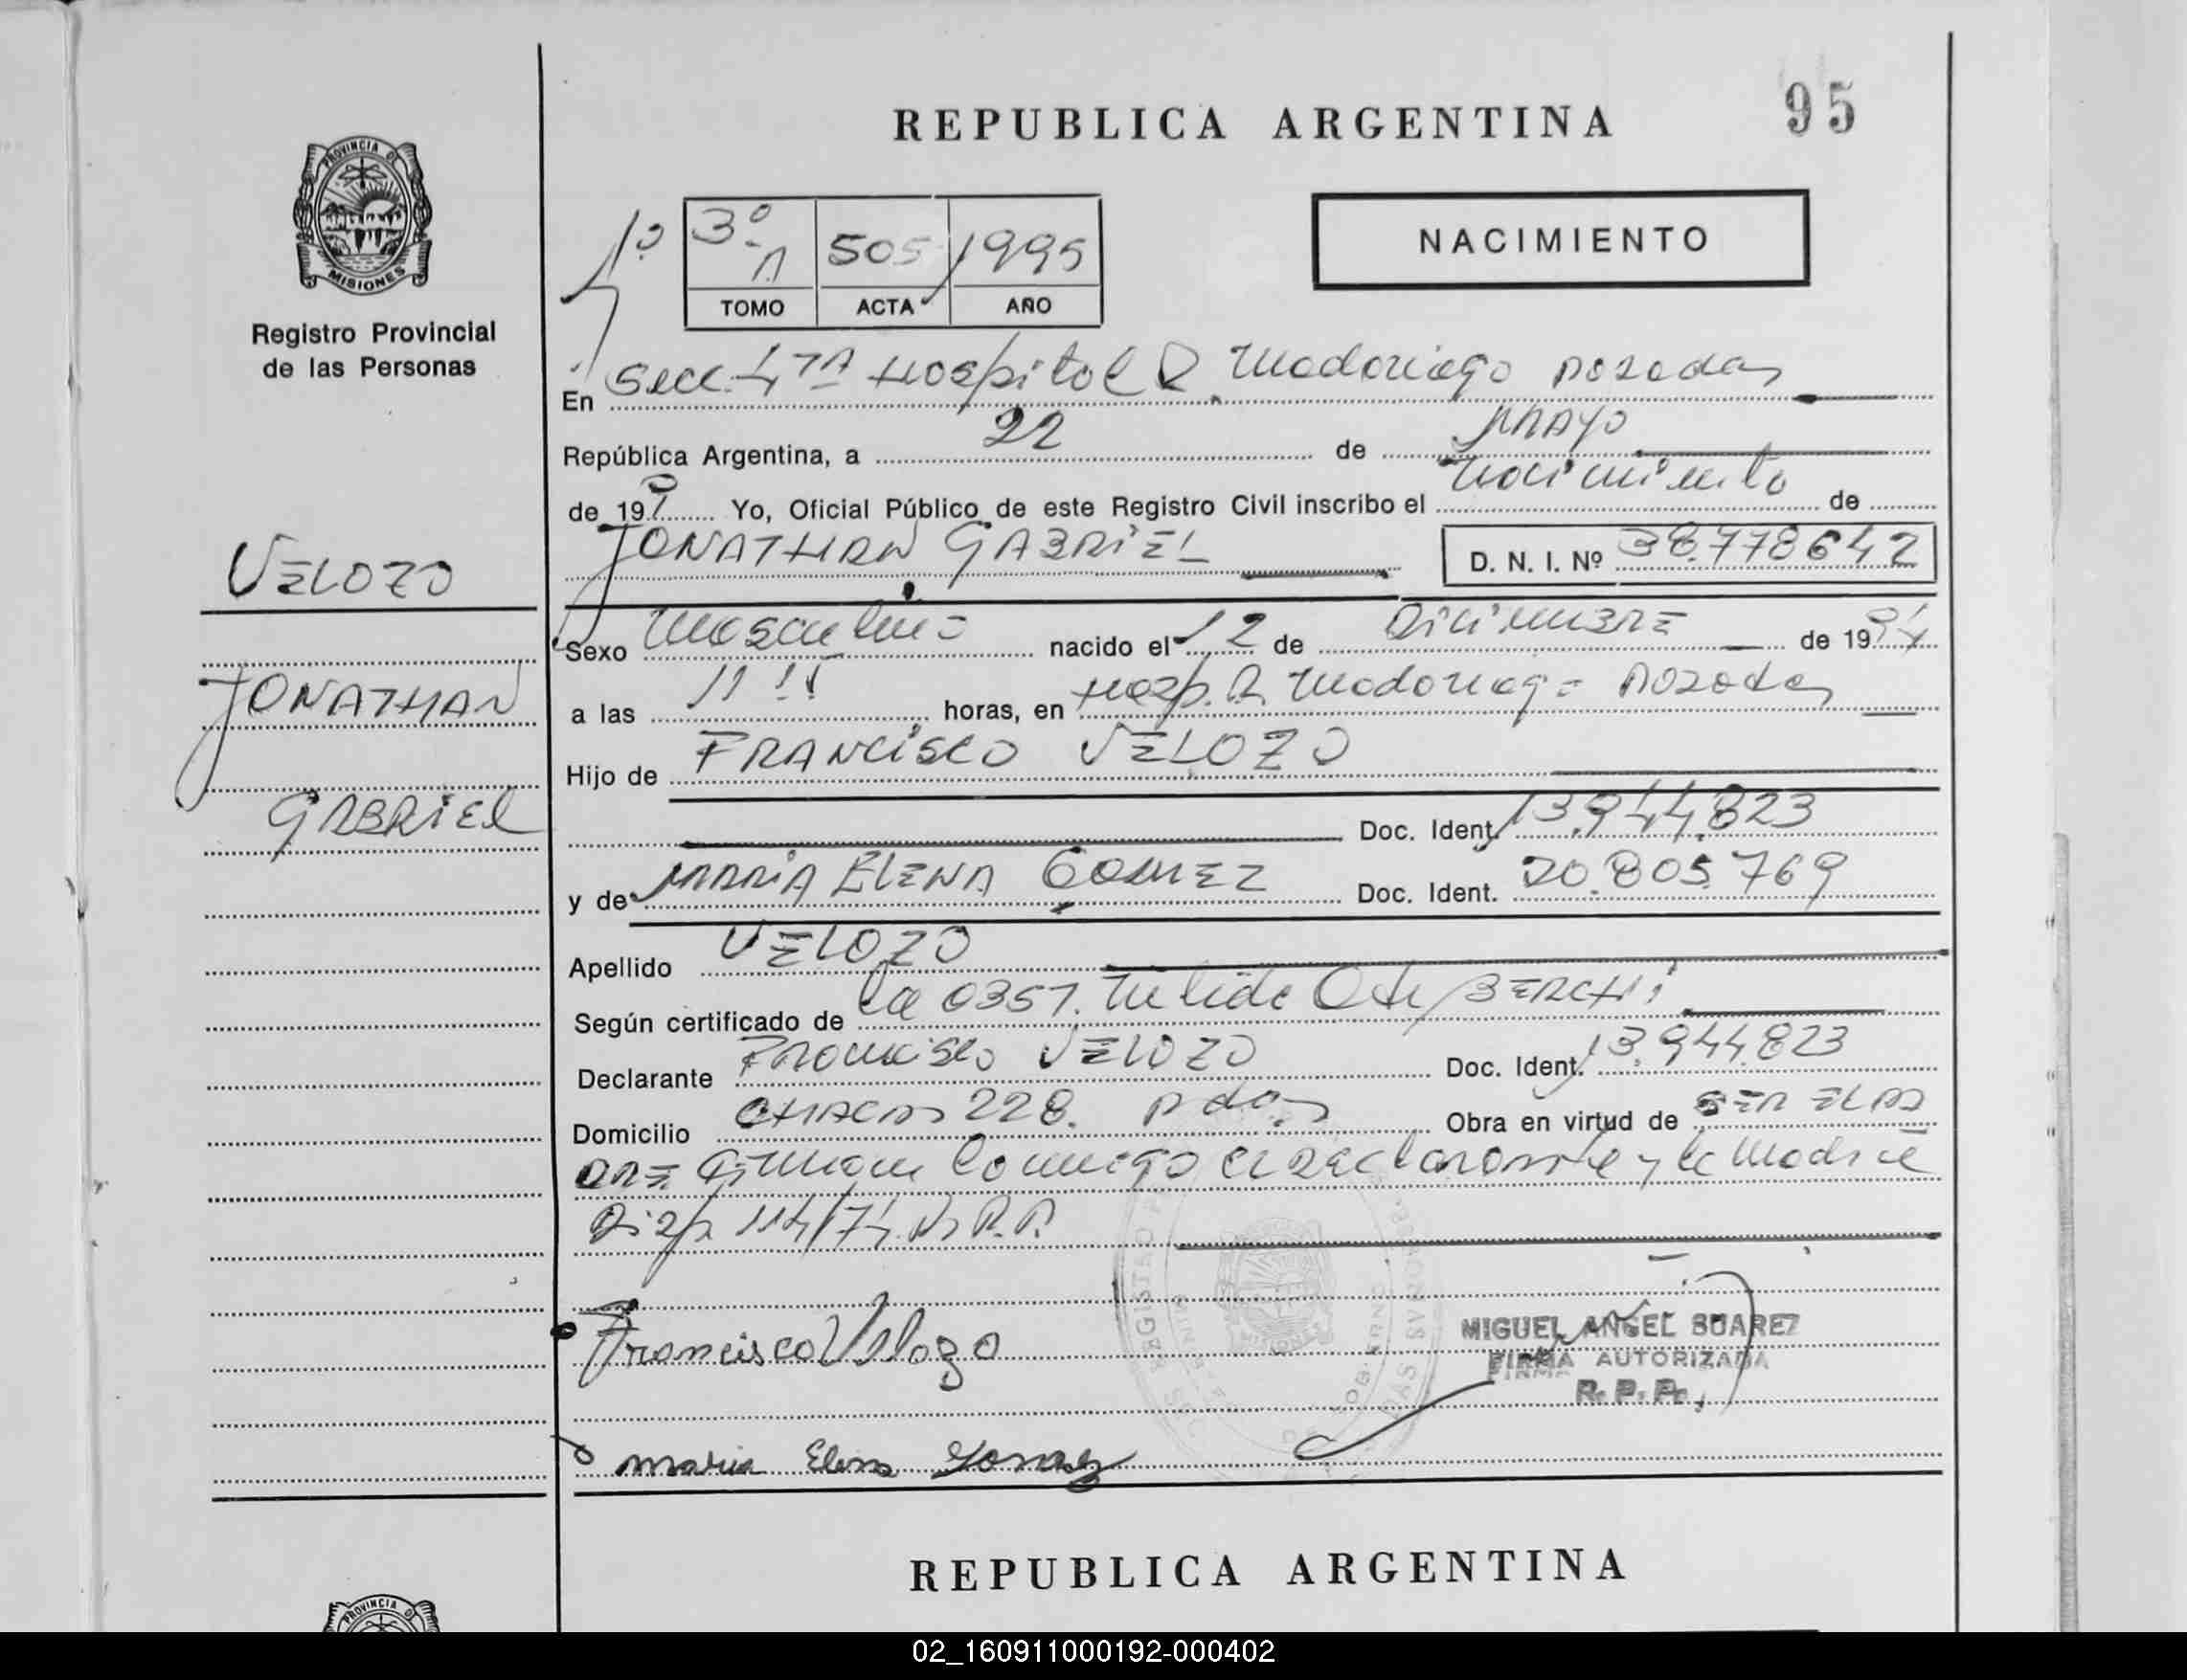 REPUBLICA ARGENTINA
95
PROVINCIA DE
MISIONES
Registro Provincial
de las Personas
1º
3º A 505 1995
TOMO ACTA AÑO
NACIMIENTO
En Secc 4TA Hospital R. Madariaga Posadas
República Argentina, a 22 de Mayo
de 199 Yo, Oficial Público de este Registro Civil inscribo el nacimiento de
JONATHAN GABRIEL
D. N. I. Nº 38.778642
VELOZO
JONATHAN
GABRIEL
Sexo Masculino nacido el 12 de Diciembre de 1994
a las 11 15 horas, en Hosp. R. Madariaga Posadas
Hijo de FRANCISCO VELOZO
Doc. Ident. 13.944.823
y de MARIA ELENA GOMEZ Doc. Ident. 20.805.769
Apellido VELOZO
Según certificado de la 0351. BERCHI
Declarante Francisco VELOZO Doc. Ident. 13.944.823
Domicilio CHACAS 228. Pdas Obra en virtud de SER EL PA
DRE Firman conmigo el declarante y la Madre
Disp 114/74 R.P.
Francisco Velozo
MIGUEL ANGEL SUAREZ
FIRMA AUTORIZADA
R. P. P.
maria Elena Gomez
REPUBLICA ARGENTINA
PROVINCIA DE
02_160911000192-000402